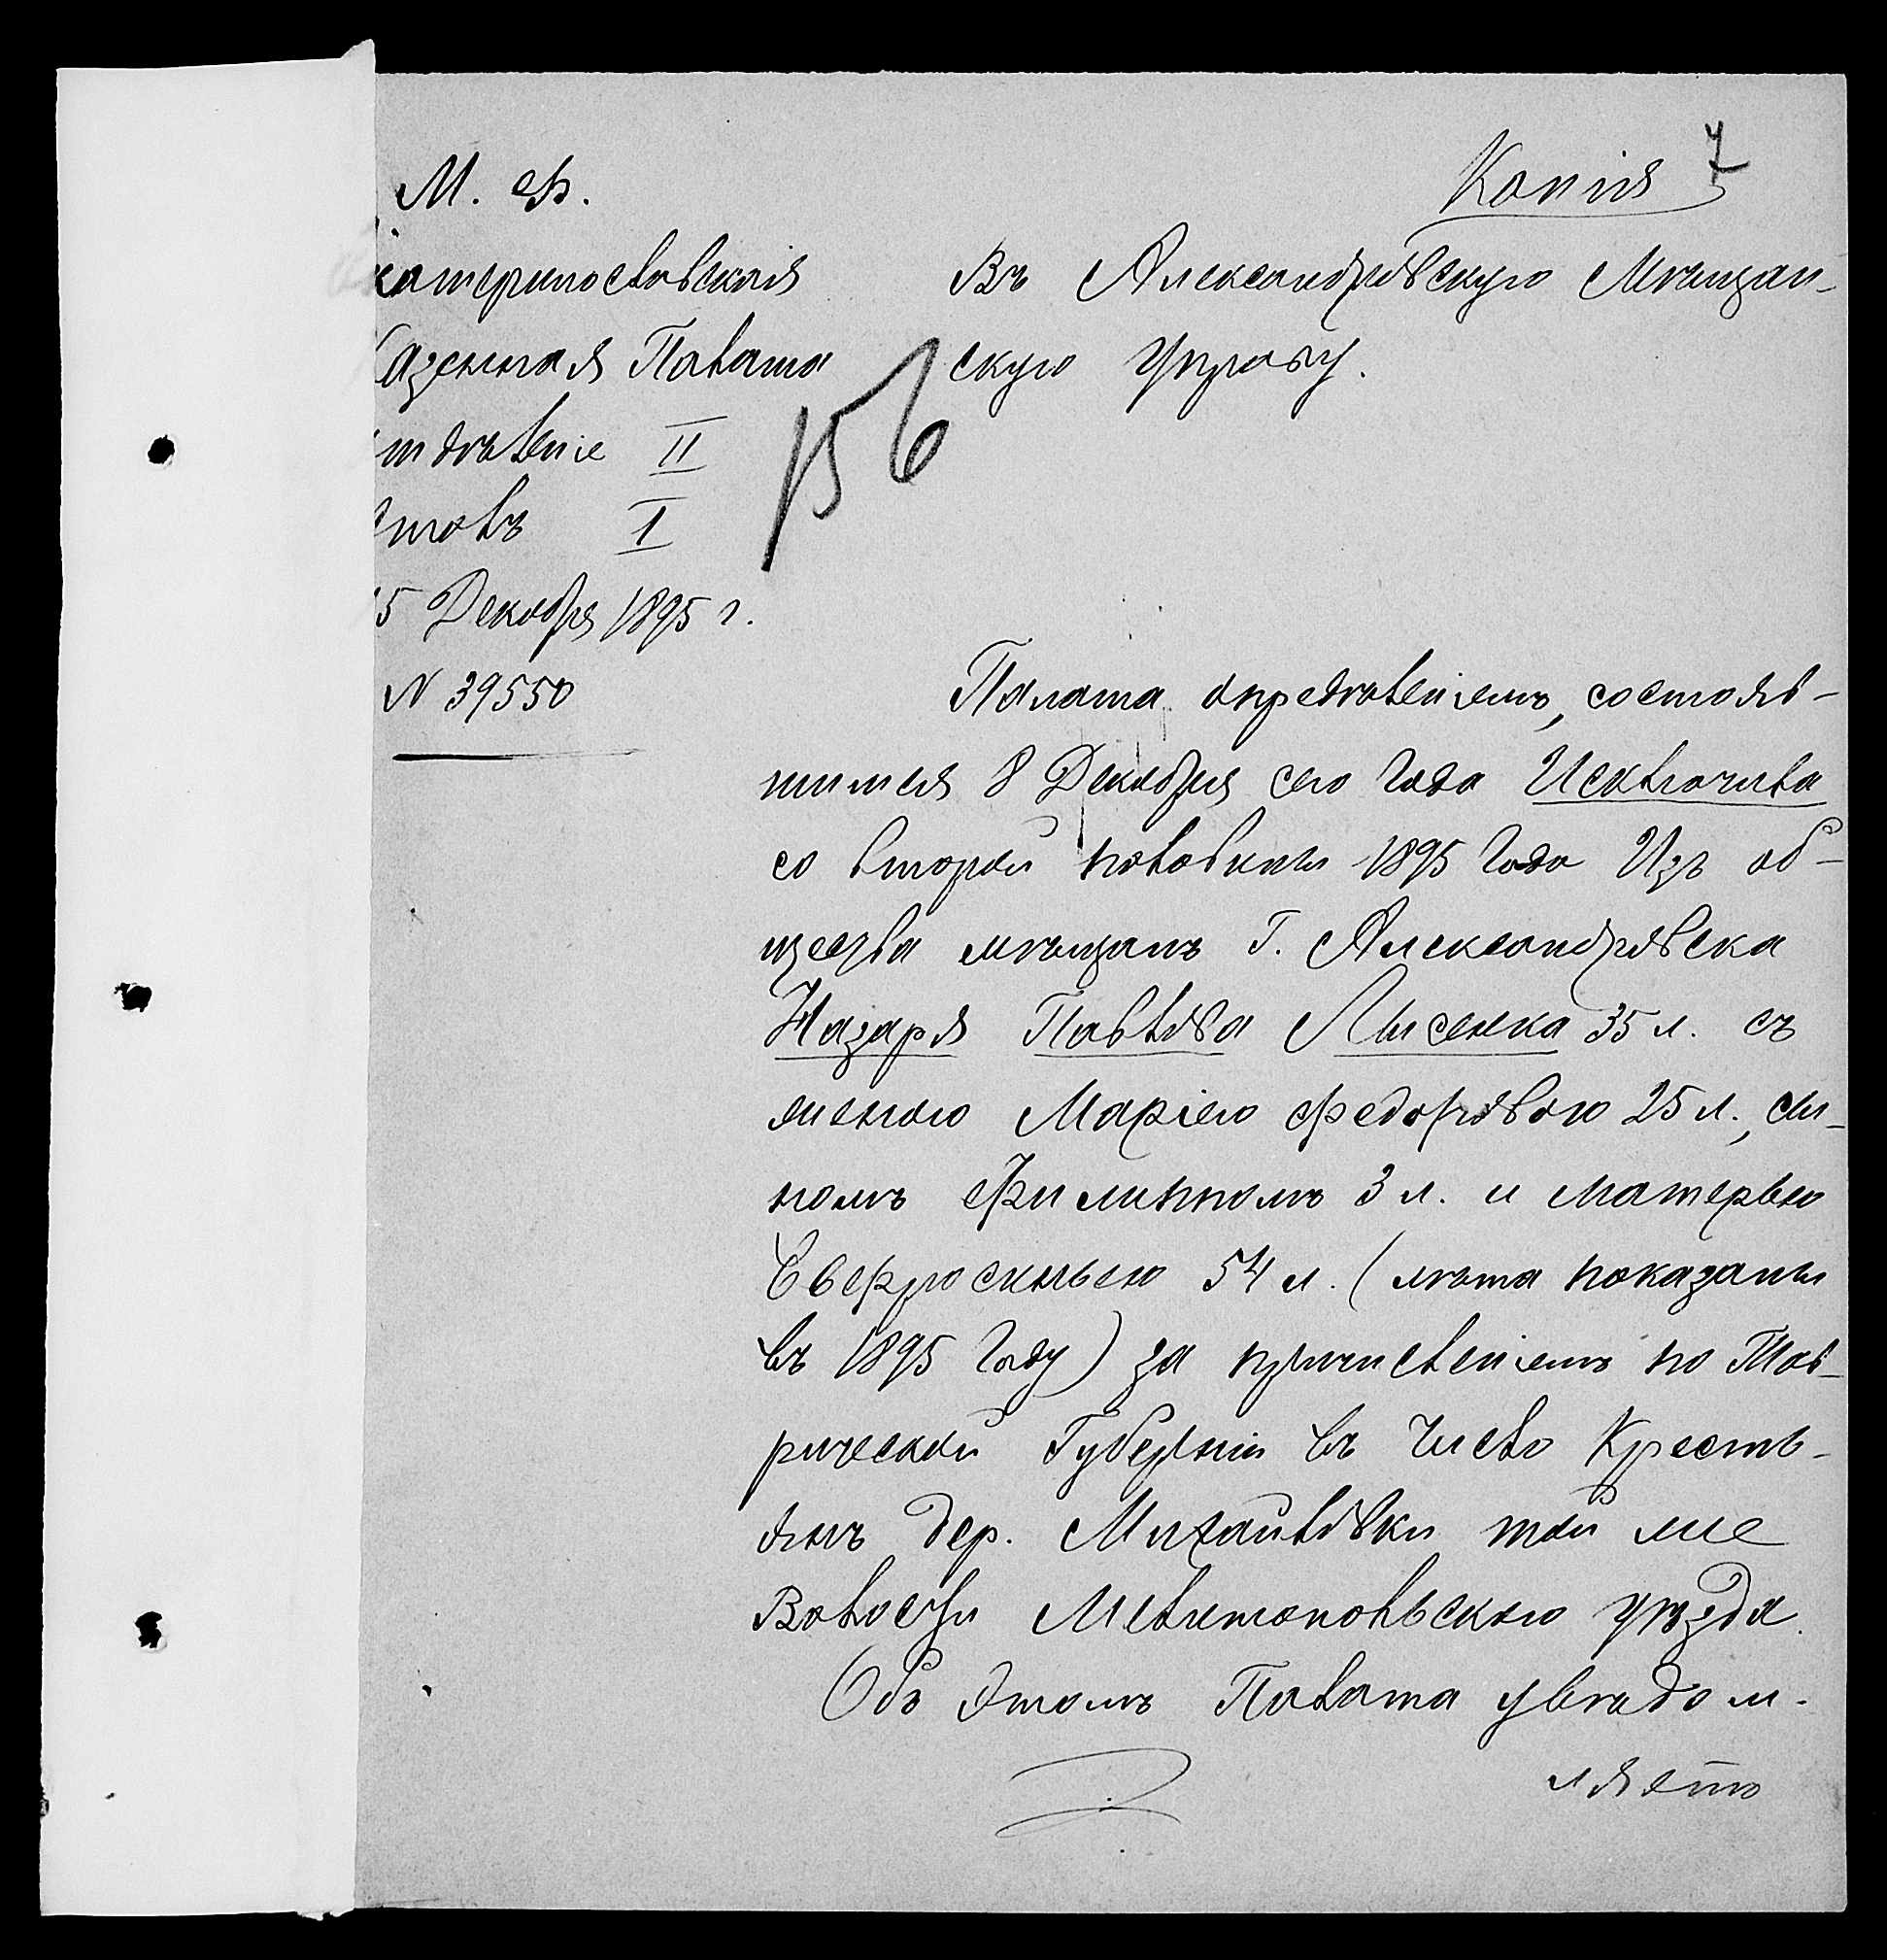 Копія 7
М. Ф.
катеринославская
Казенная Палата
тдѣленіе II
столъ I
15 Декабря 1895 г.
N 39550
Въ Александровскую Мѣщан-
скую Управу.
156
Палата опредѣленіемъ, состояв-
шимся 8 Декабря сего года Исключила
со второй половины 1895 года Изъ об-
щества мѣщанъ г. Александровска
Назаря Павлова Лысенка 35 л. съ
женою Маріею Федоровою 25 л., сы-
номъ Филиппомъ 3 л. и матерью
Евфросиньею 54 л. (лѣта показаны
въ 1895 году) за причисленіемъ по Тав-
рической Губерніи въ число Кресть-
янъ дер. Михайловки той же
Волости Мелитопольскаго уѣзда.
Объ этомъ Палата увѣдом-
ляетъ